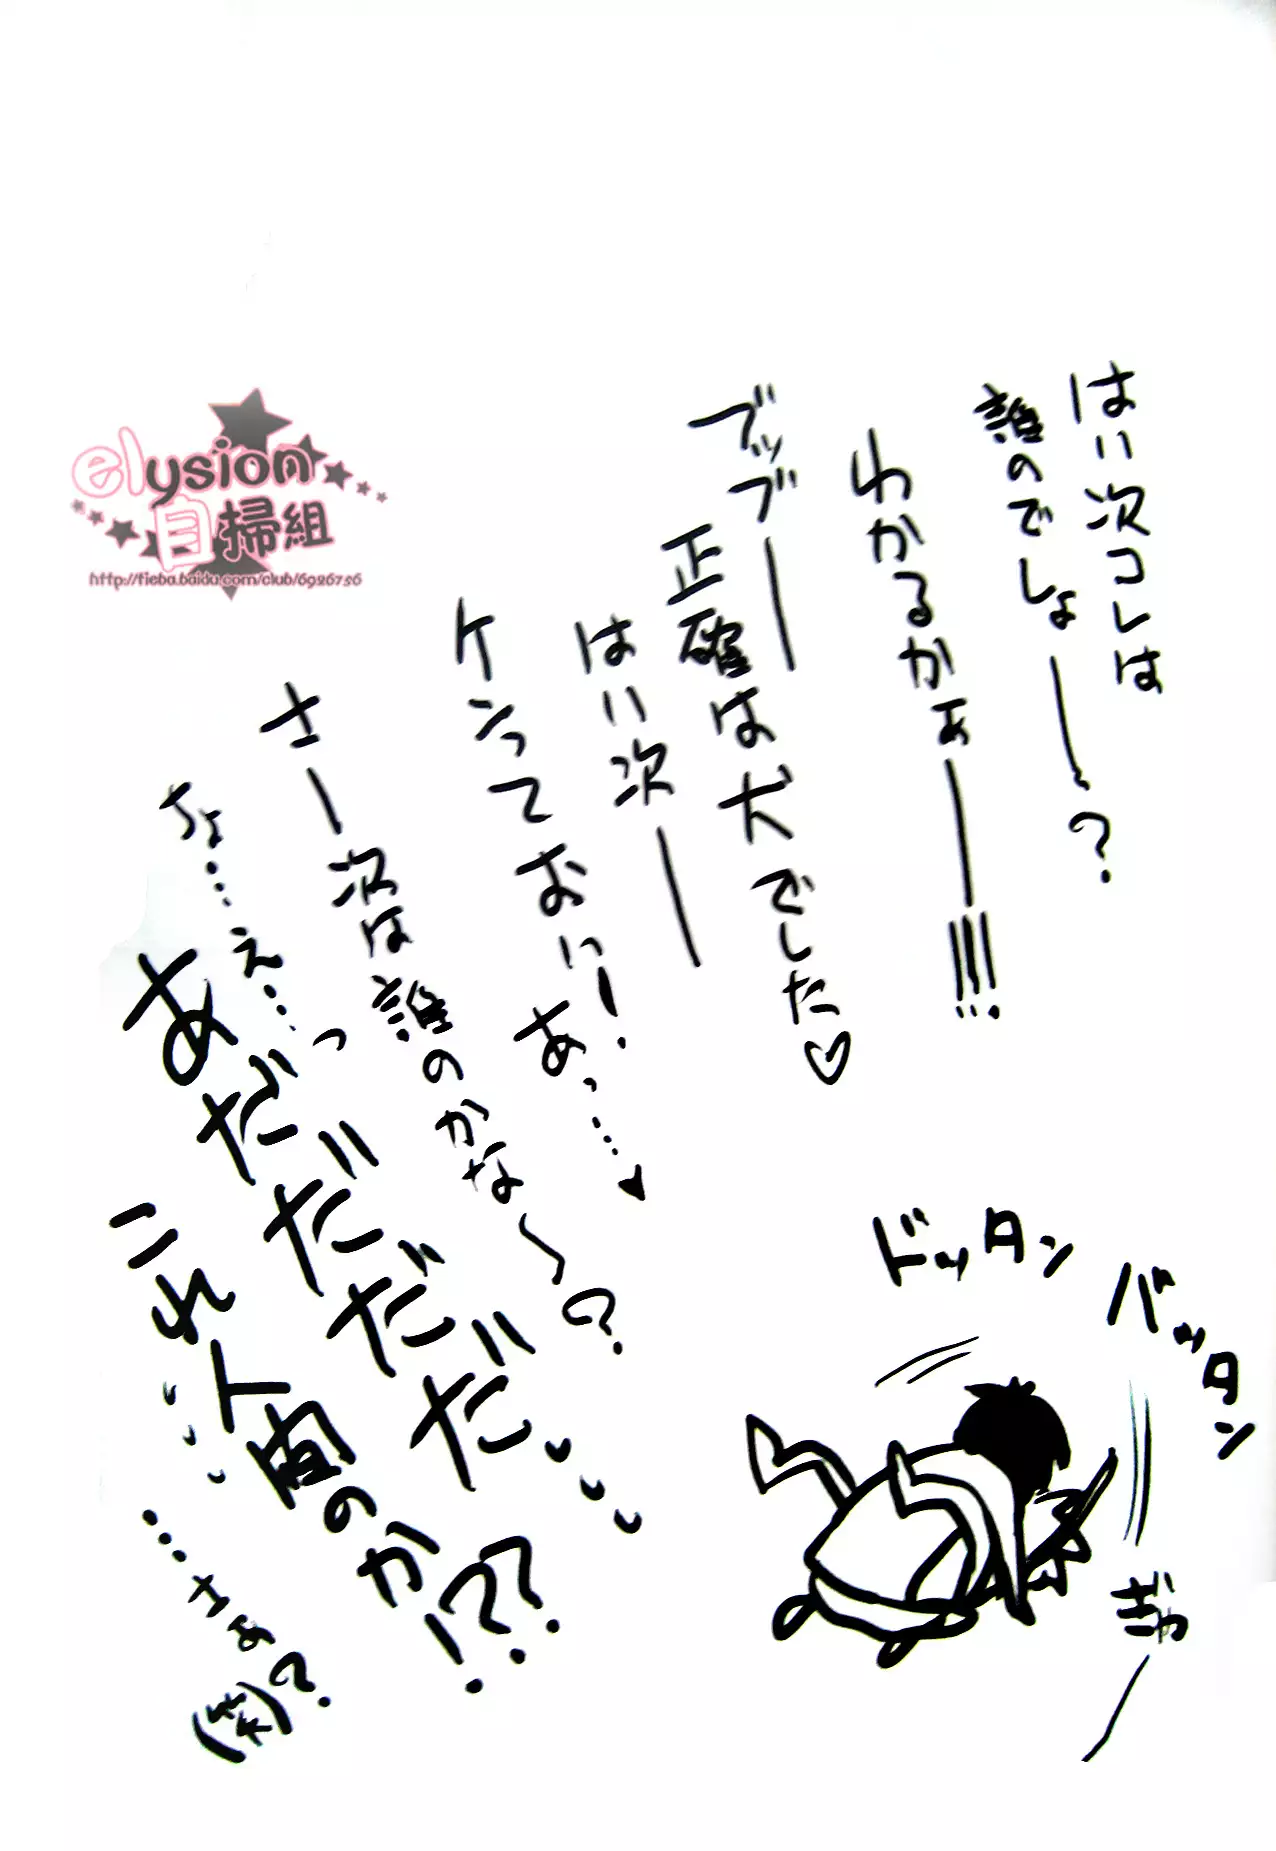 はい次コレは
誰のでしょ——?
わかるかぁ——!!!!
ブッブ——
正確は犬でした♡
はい次——
ケンっておい!
あっ…♥
さー次は誰のかな〜?
ちょ…え…っ
あだだだだ
これ人間のか!??
…さぁ?
(笑)
ドッタン
バッタン
ぎゃ—
elysion
自掃組
http://tieba.baidu.com/club/6926736